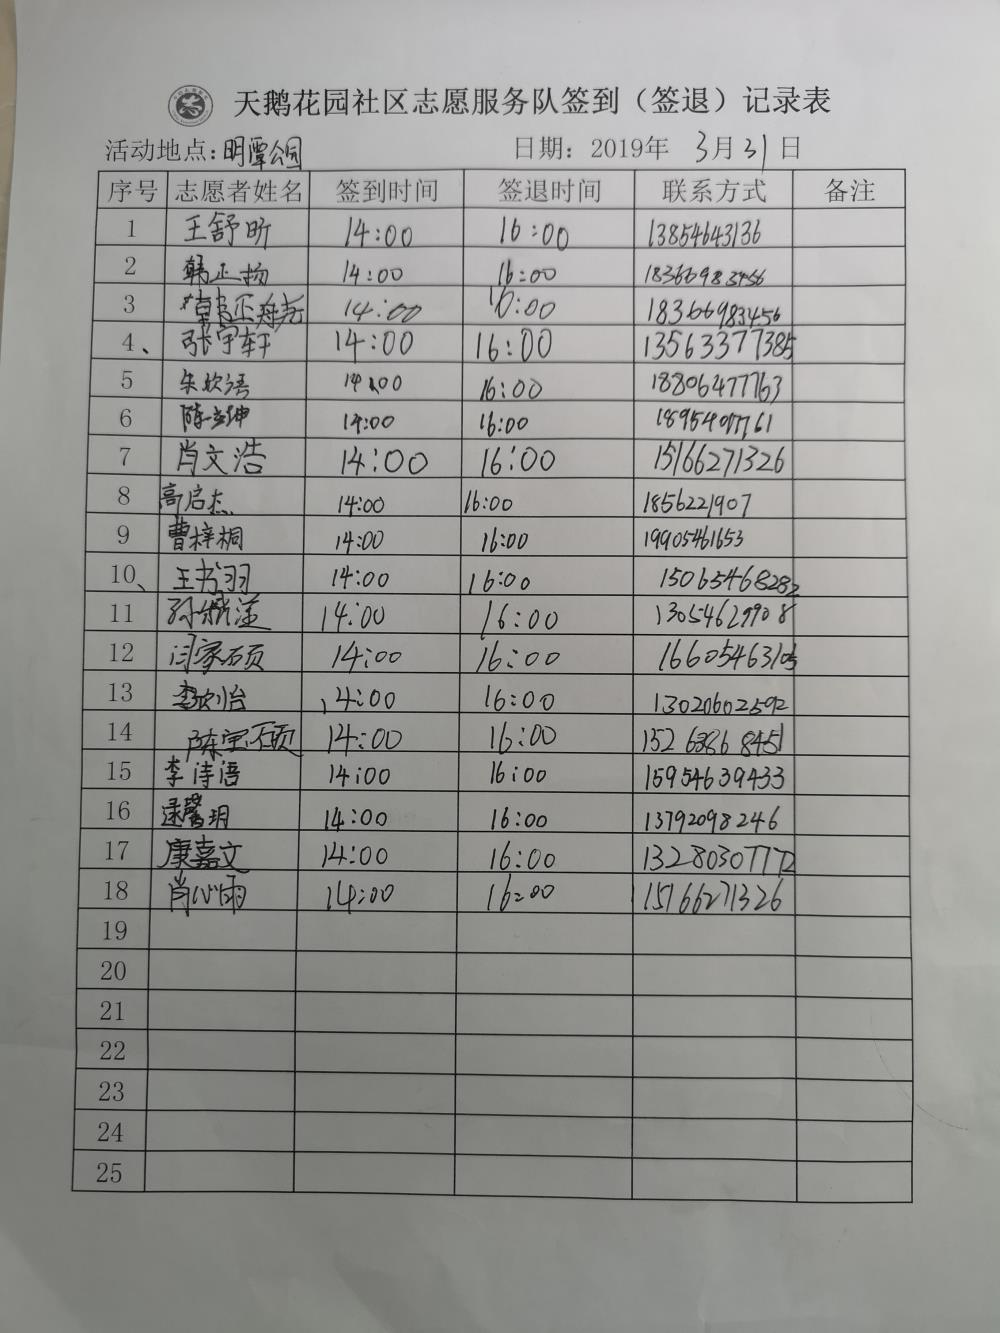 天鹅花园社区志愿服务队签到（签退）记录表
活动地点：明潭公园 日期：2019年 3月31日
序号 志愿者姓名 签到时间 签退时间 联系方式 备注
1 王舒昕 14:00 16:00 13854643136
2 韩正扬 14:00 16:00 18366983456
3 韩正尧 14:00 16:00 18366983456
4、 张宇轩 14:00 16:00 13563377385
5 朱欣语 14:00 16:00 18806477763
6 陈 14:00 16:00
7 肖文浩 14:00 16:00 15166271326
8 高启杰 14:00 16:00 1856221907
9 曹梓桐 14:00 16:00 19905461653
10、 王书羽 14:00 16:00 15065468282
11 孙 14:00 16:00 13054629908
12 闫家硕 14:00 16:00 16605463105
13 李欣怡 14:00 16:00 13020602592
14 陈宝硕 14:00 16:00 15263868451
15 李诗语 14:00 16:00 15954639433
16 逯馨玥 14:00 16:00 13792098246
17 康嘉文 14:00 16:00 13280307772
18 肖心雨 14:00 16:00 15166271326
19
20
21
22
23
24
25